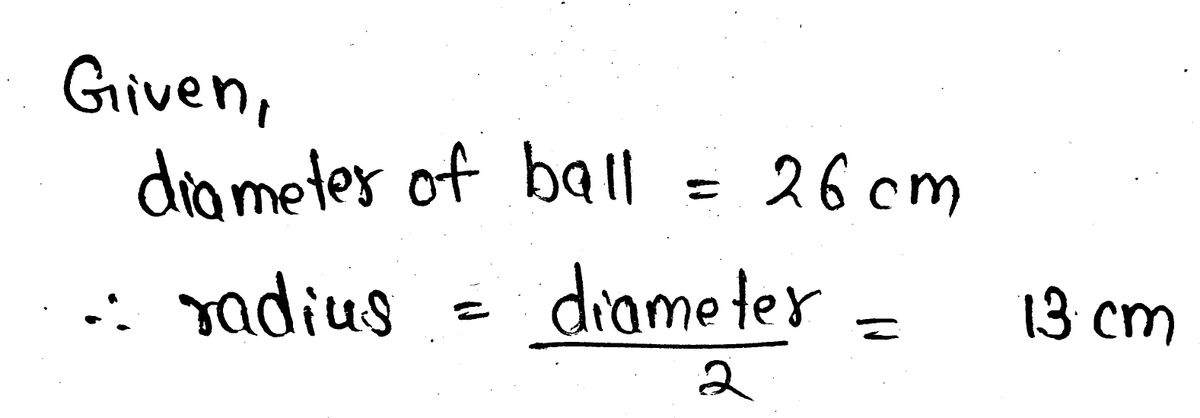 Given,
diameter of ball = 26 cm
∴ radius = diameter / 2 = 13 cm